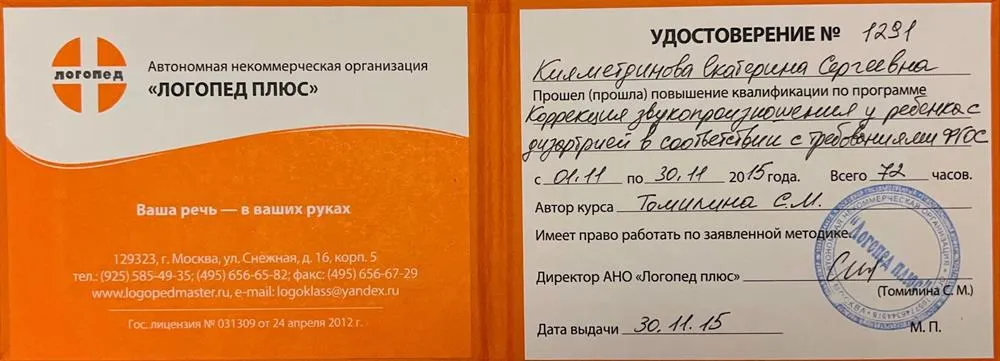 логопед
Автономная некоммерческая организация
«ЛОГОПЕД ПЛЮС»
Ваша речь — в ваших руках
129323, г. Москва, ул. Снежная, д. 16, корп. 5
тел.: (925) 585-49-35; (495) 656-65-82; факс: (495) 656-67-29
www.logopedmaster.ru, e-mail: logoklass@yandex.ru
Гос. лицензия № 031309 от 24 апреля 2012 г.
УДОСТОВЕРЕНИЕ № 1291
Кияметдинова Екатерина Сергеевна
Прошел (прошла) повышение квалификации по программе
Коррекция звукопроизношения у ребенка с
дизартрией в соответствии с требованиями ФГОС
с 01.11 по 30.11 2015 года. Всего 72 часов.
Автор курса Томилина С.М.
Имеет право работать по заявленной методике.
Директор АНО «Логопед плюс»
(Томилина С. М.)
Дата выдачи 30.11.15 М. П.
АВТОНОМНАЯ НЕКОММЕРЧЕСКАЯ ОРГАНИЗАЦИЯ
"Логопед плюс"
МОСКВА